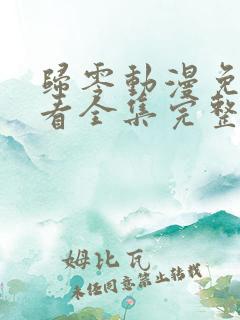 歸零動漫免
看全集完整
姆比瓦
未经同意禁止转载